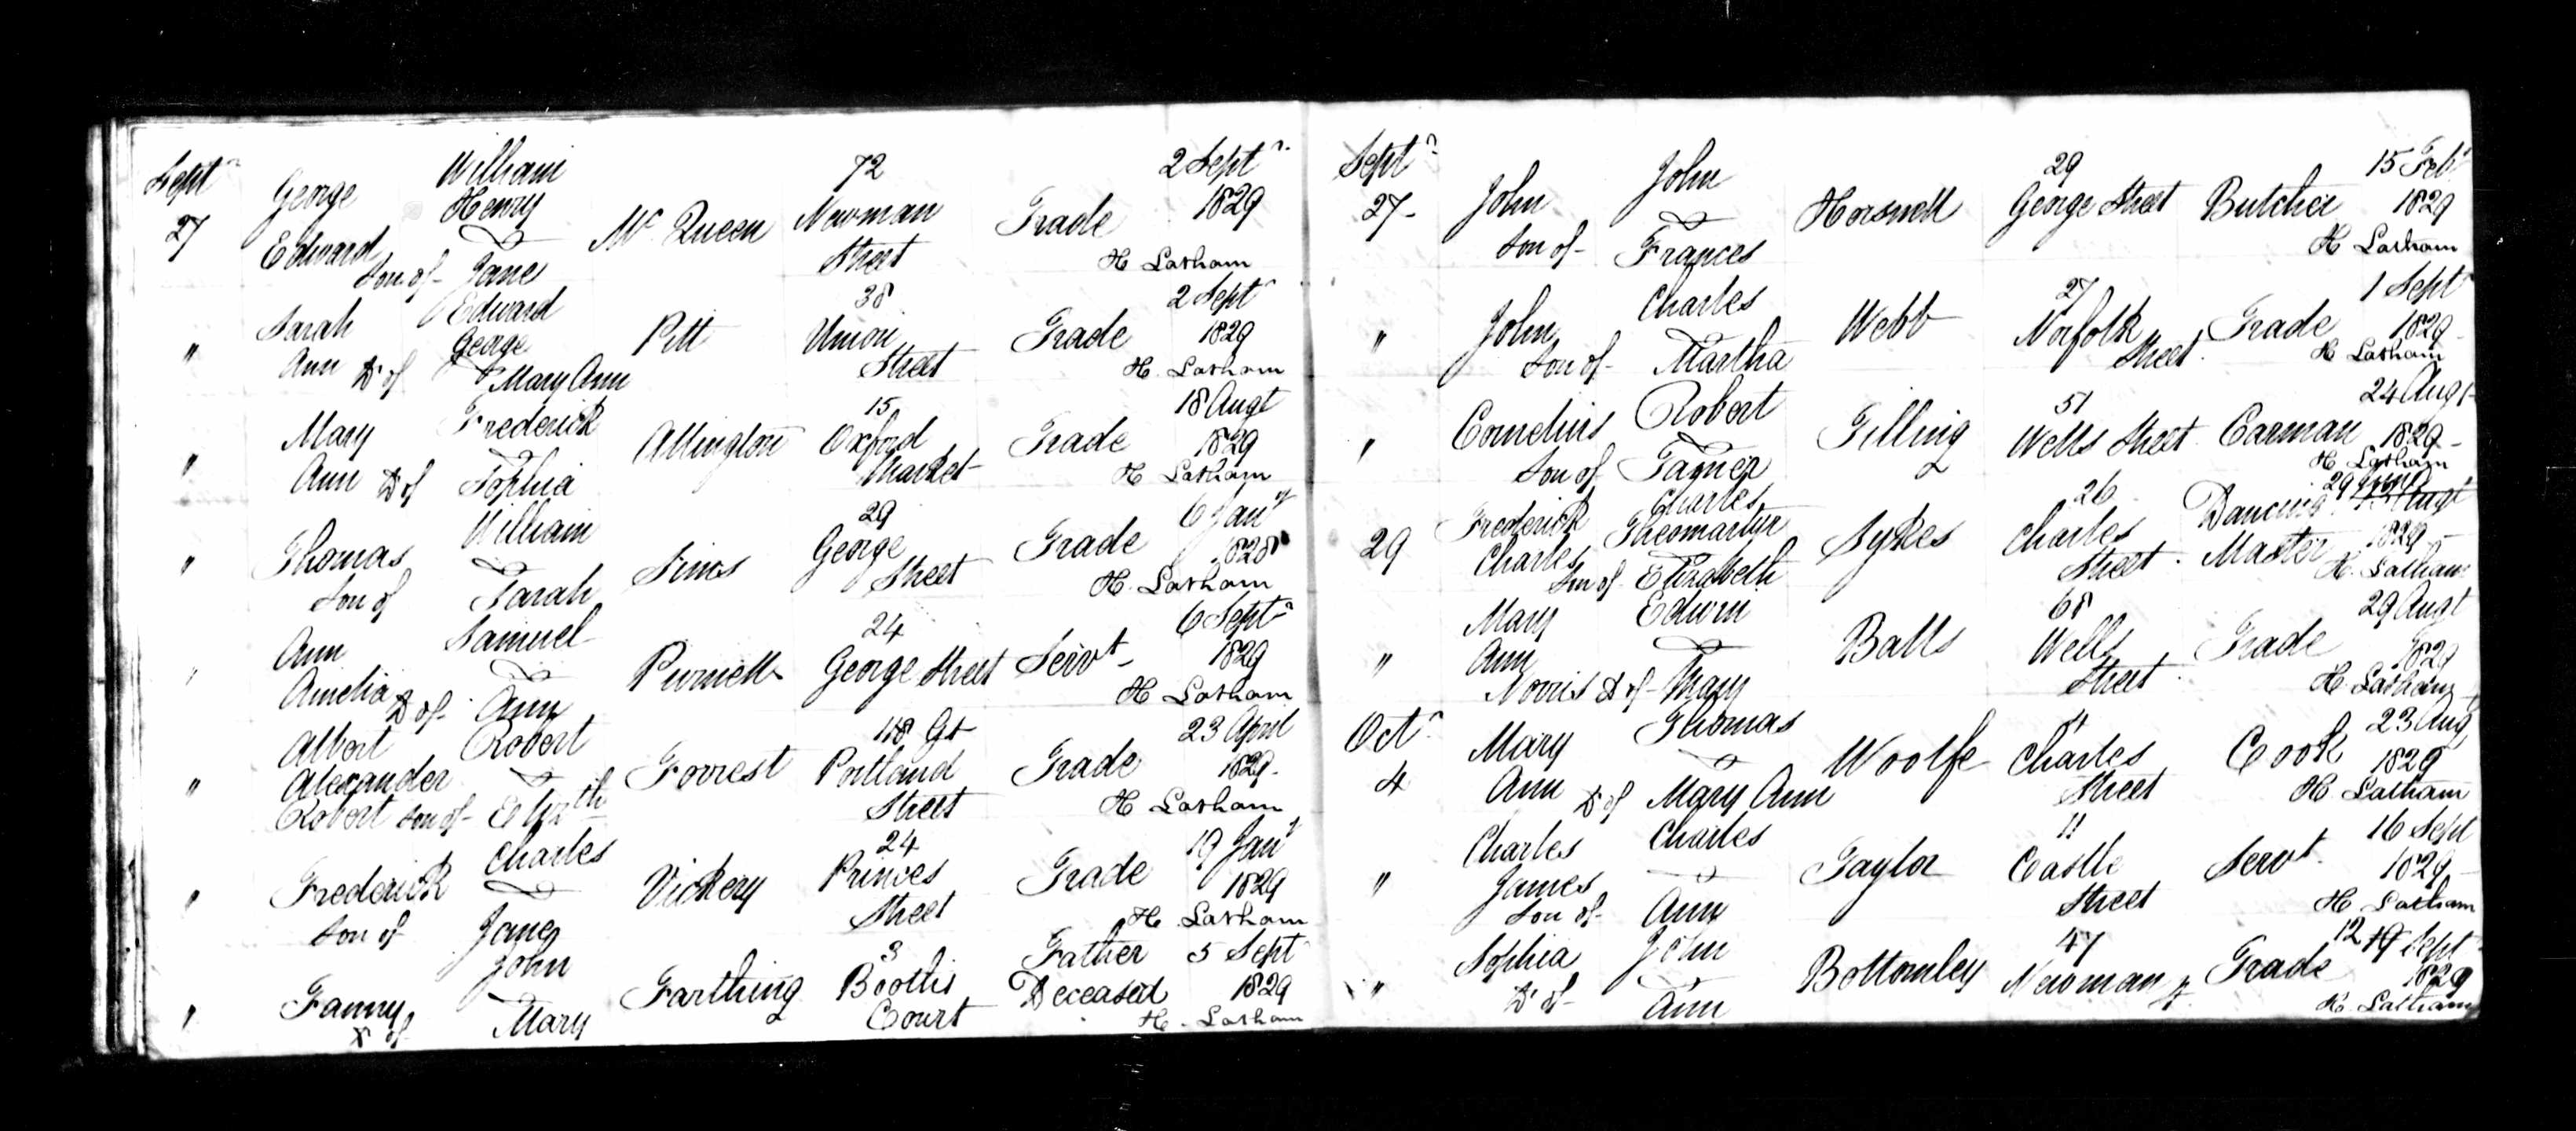 Septr
27
George
Edward
Son of
William
Henry
&
Jane
Mc Queen
72
Newman
Street
Trade
2 Septr
1829
H Latham
"
Sarah
Ann D of
Edward
George
& Mary Ann
Pitt
38
Union
Street
Trade
2 Sept
1829
H. Latham
"
Mary
Ann D of
Frederick
&
Sophia
Allington
15
Oxford
Market
Trade
18 Augt
1829
H Latham
"
Thomas
Son of
William
&
Sarah
Sims
29
George
Street
Trade
6 Jany
1828
H. Latham
"
Ann
Amelia
D of
Samuel
&
Ann
Purnell
24
George Street
Servt
6 Septr
1829
H Latham
"
Albert
Alexander
Robert Son of
Robert
&
Elizth
Forrest
118 Gt
Portland
Street
Trade
23 April
1829
H Latham
"
Frederick
Son of
Charles
&
Jane
Vickery
24
Princes
Street
Trade
19 Jany
1829
H. Latham
"
Fanny
D of
John
Mary
Farthing
3
Booths
Court
Father
Deceased
5 Sept
1829
H. Latham
Septr
27
John
Son of
John
&
Frances
Horsnell
29
George Street
Butcher
15 Feby
1829
H Latham
"
John
Son of
Charles
&
Martha
Webb
27
Norfolk
Street
Trade
1 Sept
1829
H Latham
"
Cornelius
Son of
Robert
&
Tamer
Tilling
51
Wells Street
Carman
24 Augt
1829
H Latham
29
Frederick
Charles
Son of
Charles
Theomartyr
Elizabeth
Sykes
26
Charles
Street
Dancing
Master
29
Augt
1829
H. Latham
"
Mary
Ann
Norris D of
Edwin
&
Mary
Balls
68
Wells
Street
Trade
29 Augt
1829
H. Latham
Octr
4
Mary
Ann
D of
Thomas
&
Mary Ann
Woolfe
Charles
Street
Cook
23 Aug
1829
H Latham
"
Charles
James
Son of
Charles
&
Ann
Taylor
11
Castle
Street
Servt
16 Sept
1829
H Latham
"
Sophia
D of
John
&
Ann
Bottomley
47
Newman St
Trade
12 19 Sept
1829
H. Latham